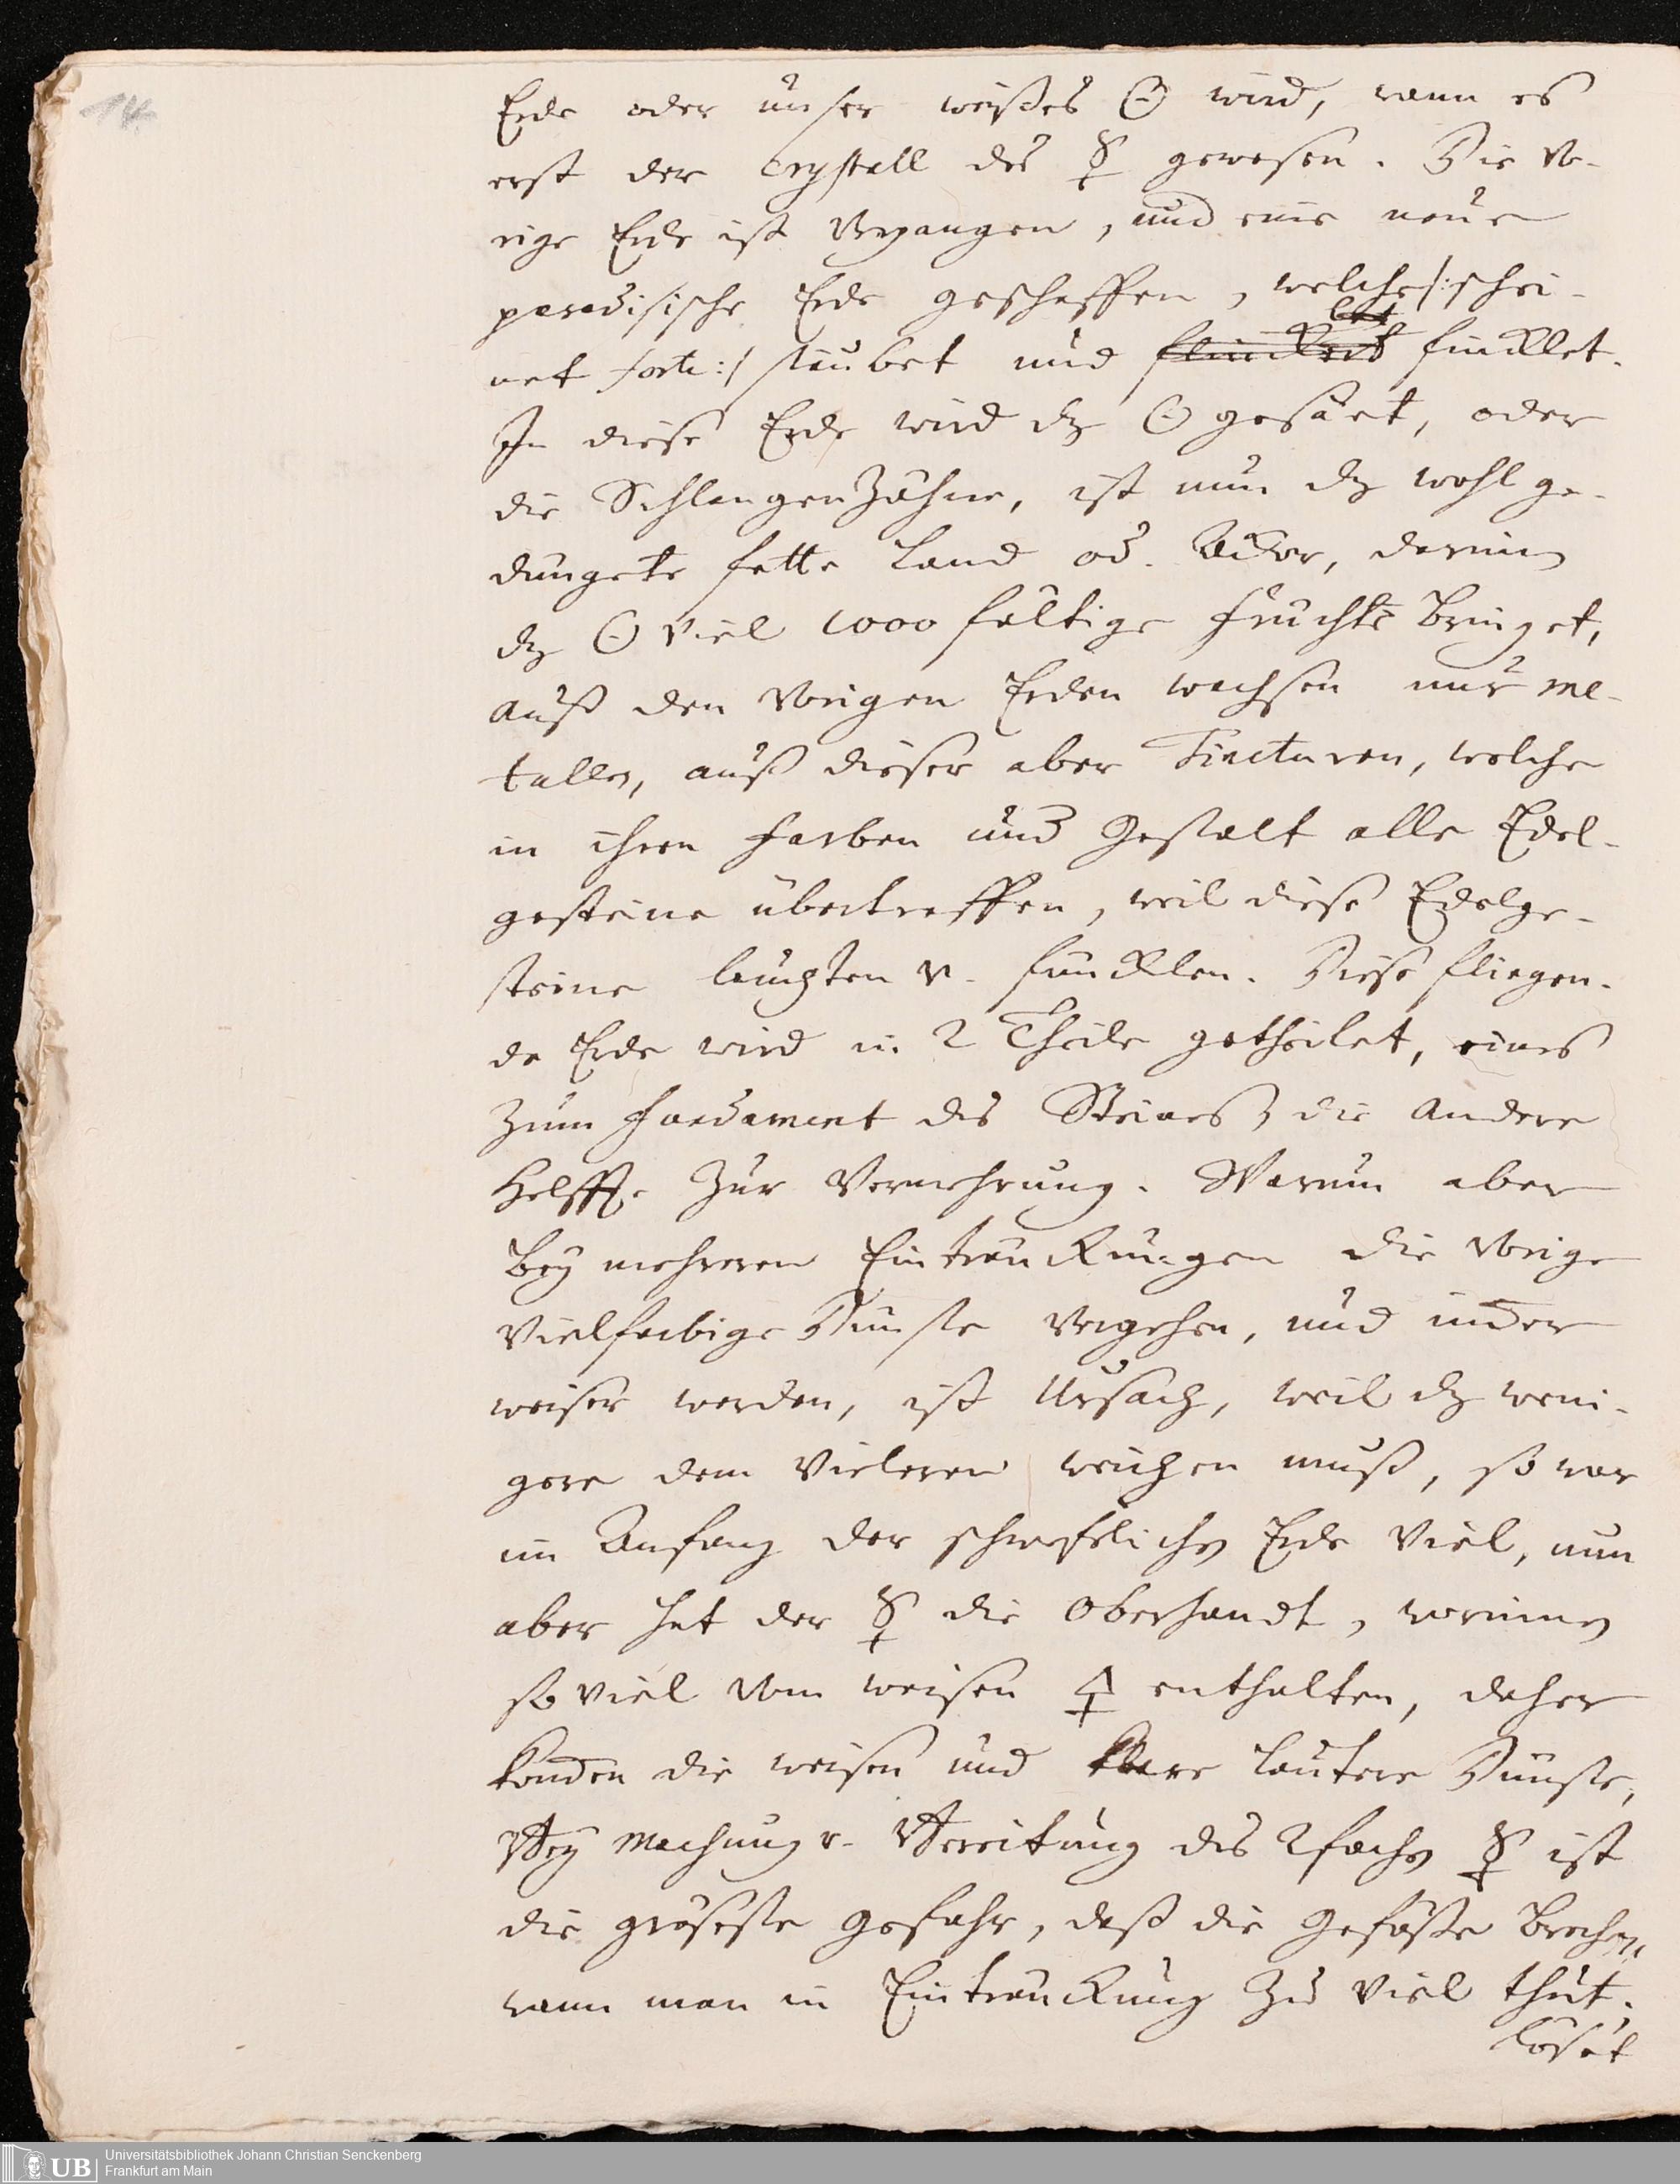 14.
Erde oder unser weißes 🜔 wird, wann es
erst der Crystall des ☿ gewesen. Die vo-
rige Erde ist vergangen, und eine neue
paradisische Erde geschaffen, welche /: schei-
net forte :/ staubet und fincklet.
In diese Erde wird dz 🜔 gesäet, oder
die Schlangen Zähne, ist nun dz wohl ge-
dungete fette Land od. Acker, darinn
dz 🜔 viel 1000 fältige Früchte bringet,
auß den vorigen Erden wachsen nur me-
tallen, auß dieser aber Tincturen, welche
in ihren Farben und Gestalt alle Edel-
gesteine übertreffen, weil diese Edelge-
steine leuchten v. funcklen. Diese fliegen-
de Erde wird in 2 Theile getheilet, eines
zum Fundament des Steines, die andere
Helffte zur Vermehrung. Warum aber
bey mehreren Eintränckungen die vorige
vielfarbige Dünste vergehen, und im̅er
weiser werden, ist Ursach, weil dz weni-
gere dem vieleren weichen muß, so war
im Anfang der schweflichen Erde viel, nun
aber hat der ☿ die Oberhandt, worinnen
so viel vom weisen 🜍 enthalten, daher
kom̅en die weisen und klare lautere Dünste,
Bey Machung v. Bereitung des 2fachen ☿ ist
die gröseste Gefahr, daß die Gefäße brechen,
wann man in Eintränckung zu viel thut.
löset
Universitätsbibliothek Johann Christian Senckenberg
UB Frankfurt am Main